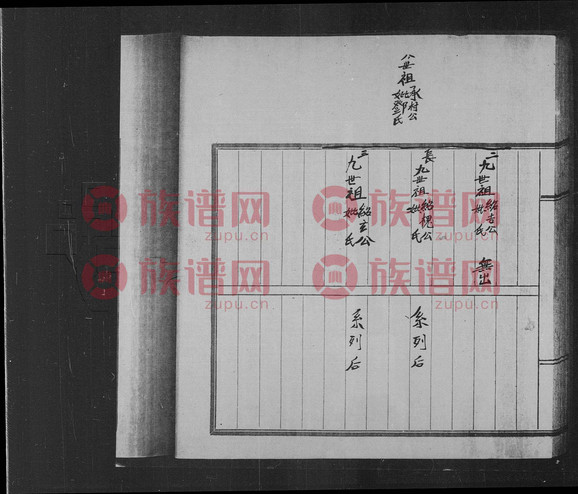 八世祖承村公
妣鄧氏
二九世祖紹玄公
妣氏
無出
長九世祖紹槐公
妣氏
系列后
三九世祖紹玄公
妣氏
系列后
族谱网 族谱网
zupu.cn zupu.cn
族谱网 族谱网
zupu.cn zupu.cn